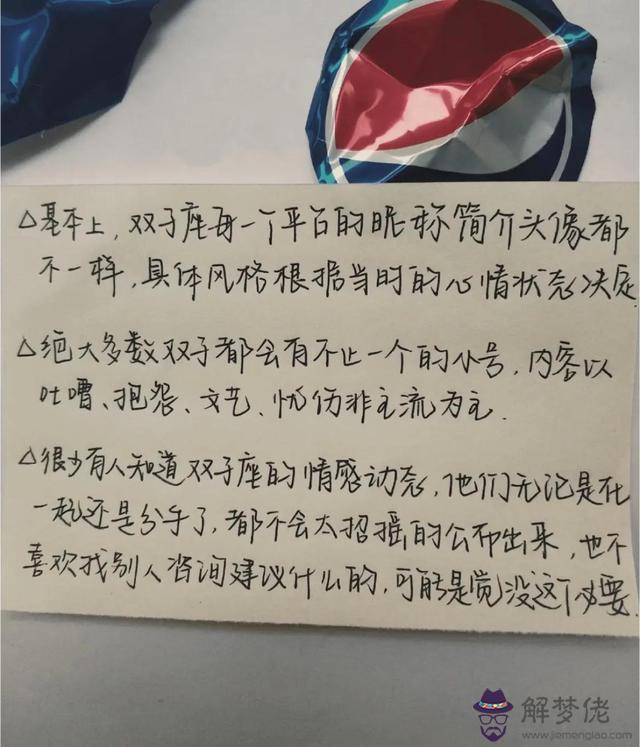 △基本上,双子座每一个平台的昵称简介头像都
不一样,具体风格根据当时的心情状态决定
△绝大多数双子都会有不止一个的小号,内容以
吐嘈、抱怨、文艺、忧伤非主流为主.
△很少有人知道双子座的情感动态,他们无论是在
一起还是分手了,都不会太招摇的公布出来,也不
喜欢找别人咨询建议什么的,可能是觉没这个必要.
解梦佬
www.jiemenglao.com